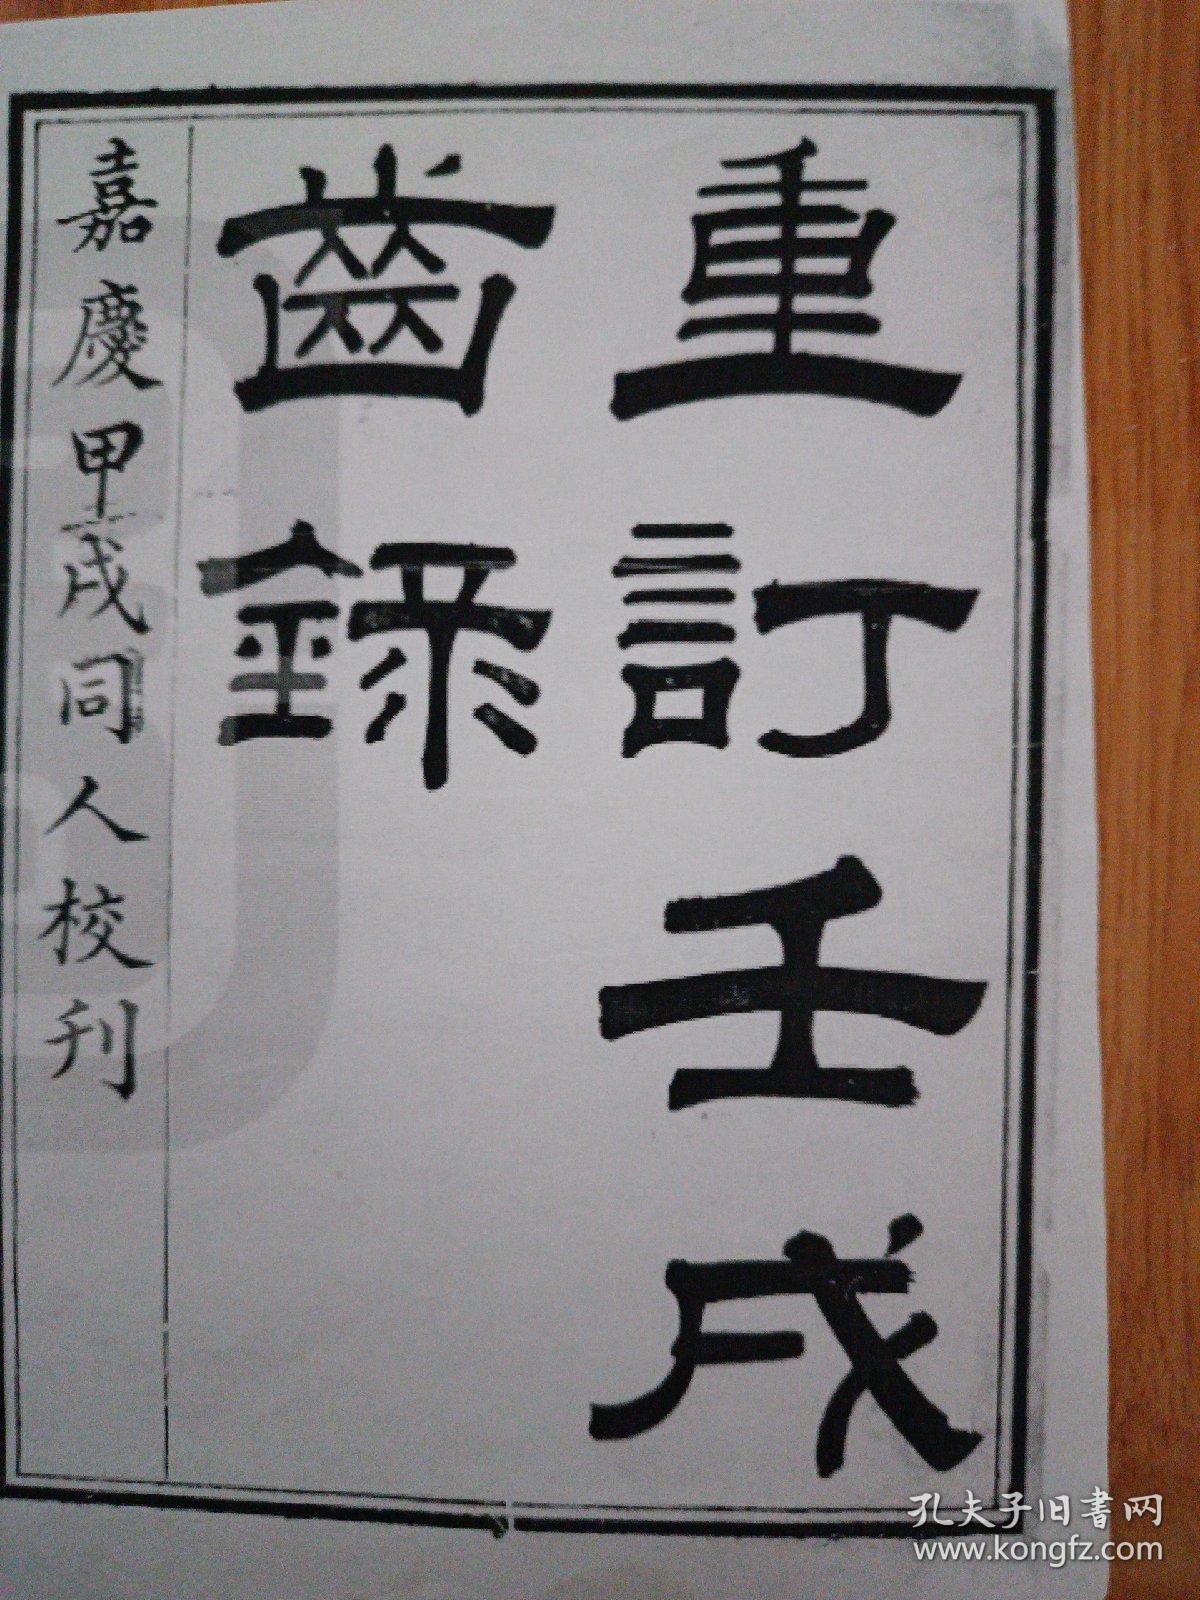 重訂壬戌
齒錄
嘉慶甲戌同人校刊
孔夫子旧书网
www.kongfz.com